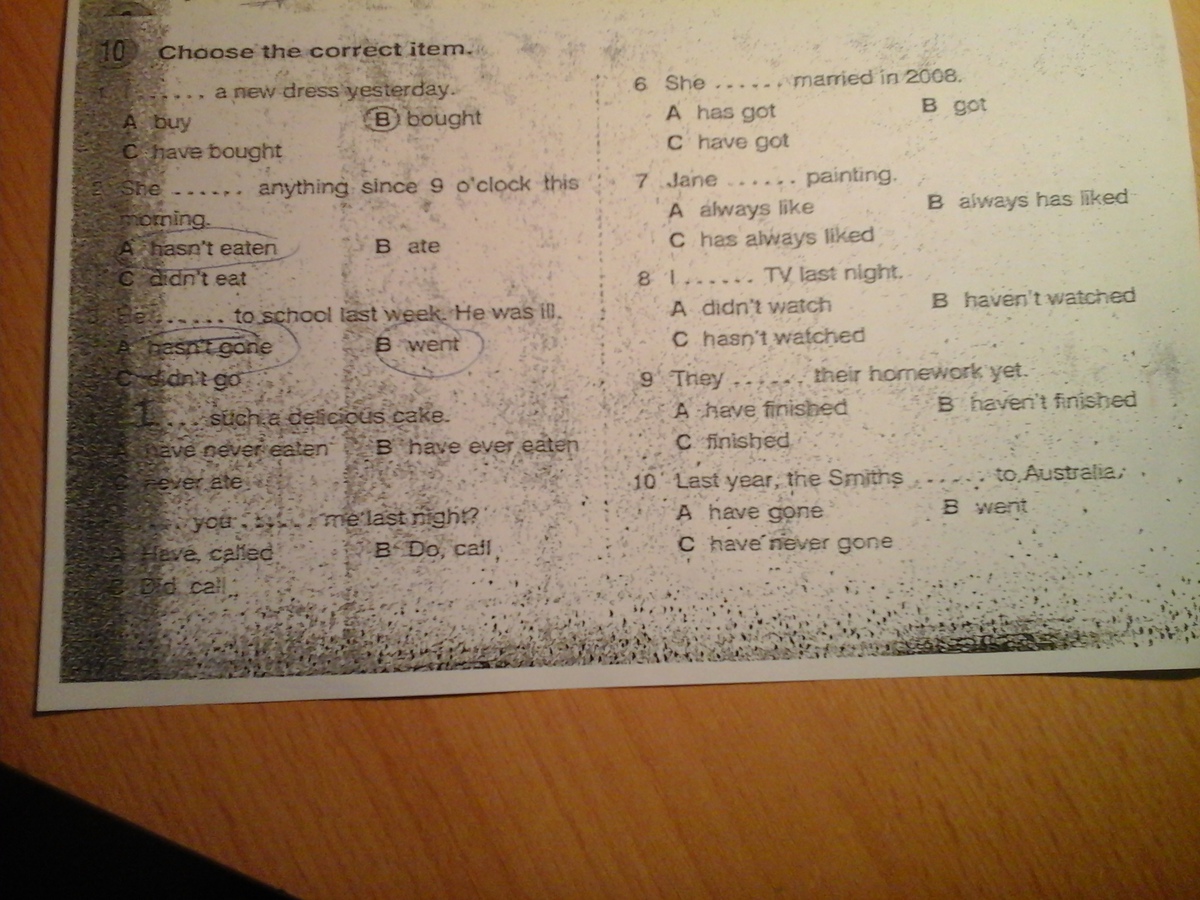 10 Choose the correct item.
1 I ...... a new dress yesterday.
A buy B bought
C have bought
2 She ...... anything since 9 o'clock this
morning.
A hasn't eaten B ate
C didn't eat
He ...... to school last week. He was ill.
A hasn't gone B went
C didn't go
I .... such a delicious cake.
A have never eaten B have ever eaten
C never ate
.... you ...... me last night?
A Have, called B Do, call
C Did call
6 She ...... married in 2008.
A has got B got
C have got
7 Jane ...... painting.
A always like B always has liked
C has always liked
8 I ...... TV last night.
A didn't watch B haven't watched
C hasn't watched
9 They ...... their homework yet.
A have finished B haven't finished
C finished
10 Last year, the Smiths ...... to Australia.
A have gone B went
C have never gone